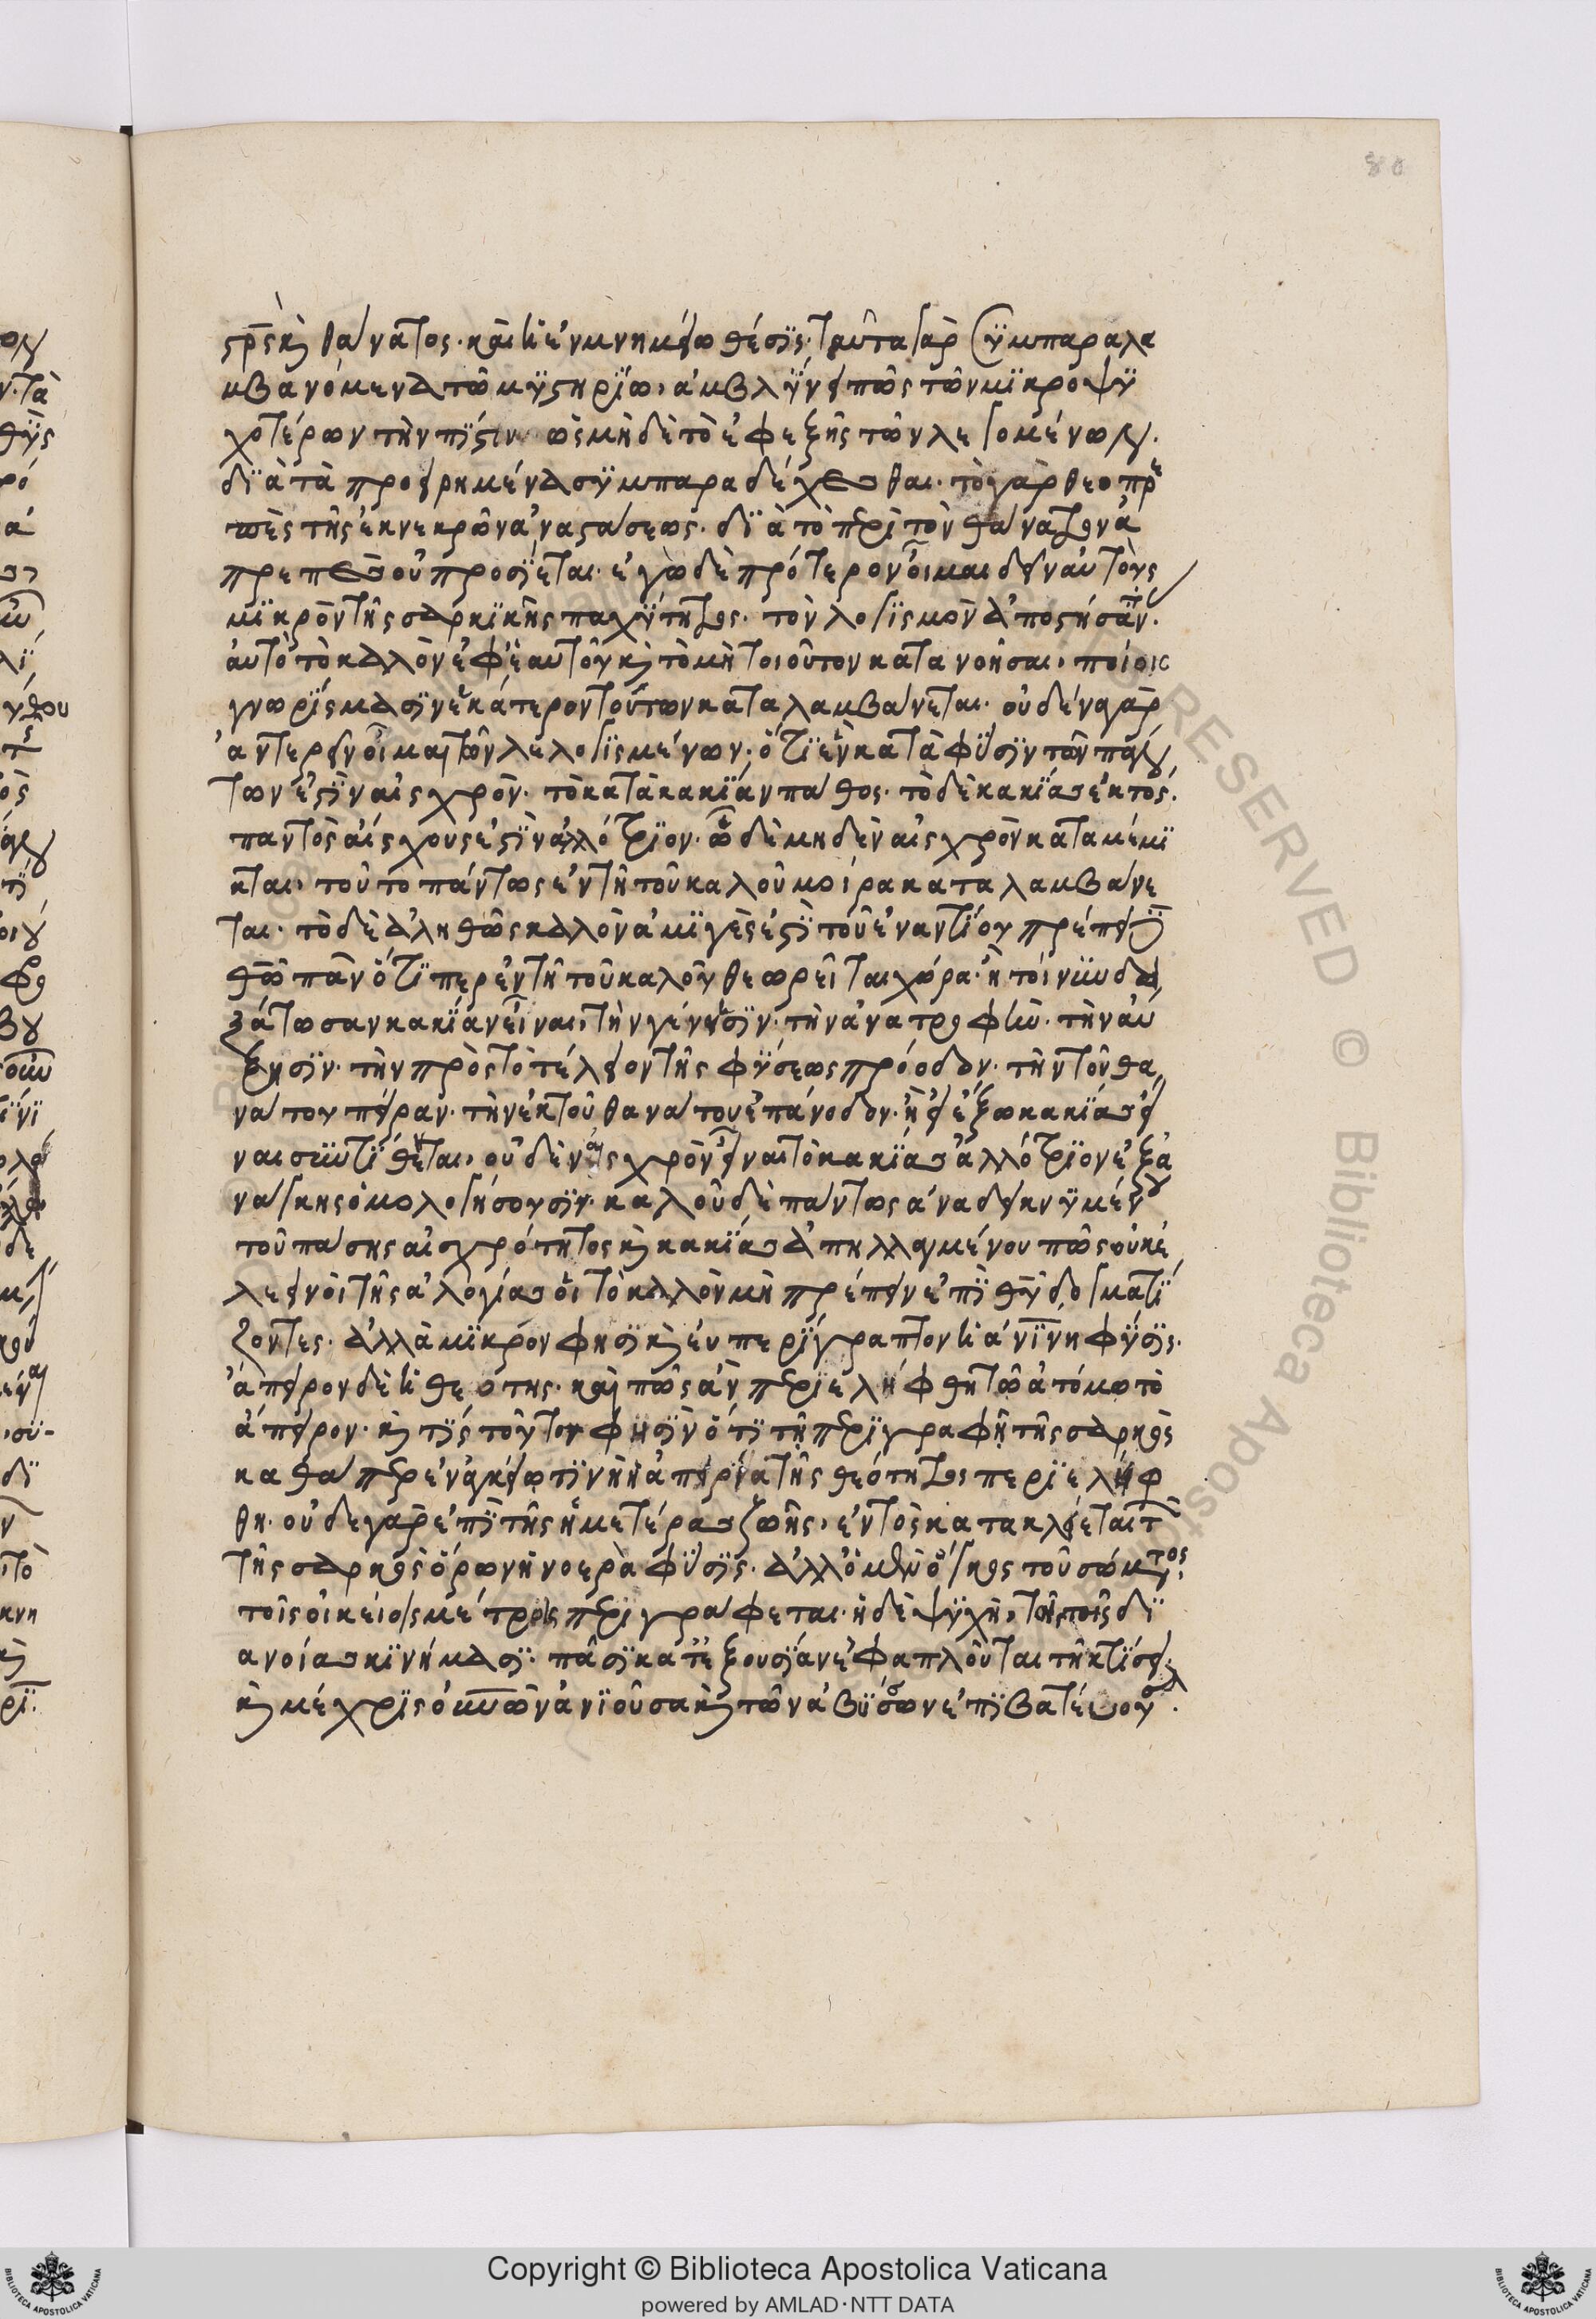 80
σ̅ρ̅ς καὶ θάνατος. καὶ ἡ ἐν μνημείω θέσϊς. ταῦτα γὰρ σϋμπαραλα
μβανόμενα τῶ μϋστηρίω, ἀμβλϋνει πῶς τῶν μϊκροψϋ
χοτέρων τὴν πϊστιν ὡς μὴ δὲ τὸ ἐφεξῆς τῶν λεγομένων.
δϊὰ τὰ προειρημένα σϋμπαραδέχεσθαι. τὸ γὰρ θεοπρε
πὲς τῆς ἐκ νεκρῶν ἀναστάσεως. δϊὰ τὸ περὶ τὸν θάνατον ἀ
πρεπὲς οὐ προσϊεται. ἐγὼ δὲ πρότερον οἶμαι δεῖν αὐτοὺς
μϊκρὸν τῆς σαρκϊκῆς παχϋτητος. τὸν λογϊσμὸν ἀποστήσαντ.
αὐτὸ τὸ καλὸν ἐφ' ἑαυτοῦ καὶ τὸ μὴ τοιοῦτον κατανοῆσαι, ποίοις
γνωρϊσμασϊν ἑκάτερον τούτων καταλαμβάνεται. οὐδένα γὰρ
ἀντερεῖν οἶμαι τῶν λελογϊσμένων. ὅτϊ ἓν κατὰ φϋσϊν τῶν πάν
των ἐστϊν αἰσχρὸν. τὸ κατὰ κακϊαν πάθος. τὸ δὲ κακϊας ἐκτὸς.
παντὸς αἴσχους ἐστϊν ἀλλότρϊον. ὧ δὲ μηδὲν αἰσχρὸν καταμέμϊ
κται, τοῦτο πάντως ἐν τῆ τοῦ καλοῦ μοίρα καταλαμβάνε
ται. τὸ δὲ ἀληθῶς καλὸν ἀμϊγὲς ἐστϊ τοῦ ἐναντϊου πρέπει δὲ
θ̅ῶ πᾶν ὅτϊ περ ἐν τῆ τοῦ καλοῦ θεωρεῖται χώρα. ἢ τοίνυν δει
ξάτωσαν κακϊαν εἶναι, τὴν γένεσϊν. τὴν ἀνατροφὴν. τὴν αὔ
ξησϊν. τὴν πρὸς τὸ τέλειον τῆς φϋσεως πρόοδον. τὴν τοῦ θα
νάτου πεῖραν. τὴν ἐκ τοῦ θανάτου ἐπάνοδον. ἢ εἰ ἔξω κακϊας εἶ
ναι συντϊθεται, οὐδὲν αἰσχρὸν εἶναι τὸ κακϊας ἀλλότρϊον ἐξ ἀ
νάγκης ὁμολογήσουσϊν. καλοῦ δὲ πάντως ἀναδεικνϋμένου
τοῦ πάσης αἰσχρότητος καὶ κακϊας ἀπηλλαγμένου πῶς οὐκ ἐ
λεεινοὶ τῆς ἀλογίας οἱ τὸ καλὸν μὴ πρέπειν ἐπϊ θ̅υ̅ δογματϊ
ζοντες. ἀλλὰ μϊκρὸν φησϊ καὶ εὐπερϊγραπτον ἡ ἀν̅ϊ̅νη φϋσϊς.
ἄπειρον δὲ ἡ θεότης. καὶ πῶς ἂν περϊελήφθη τῶ ἀτόμω τὸ
ἄπειρον. καὶ τϊς τοῦτο φησϊν ὅτϊ τῆ περϊγραφῆ τῆς σαρκὸς
καθάπερ ἐν ἀγγείω τϊνὶ ἡ ἀπειρία τῆς θεότητος περϊελήφ
θη. οὐδὲ γὰρ ἐπϊ τῆς ἡμετέρας ζωῆς, ἐντὸς κατακλείεται τ
τῆς σαρκὸς ὅρων ἡ νοερὰ φϋσϊς. ἀλλ' ὁ μὲν ὄγκος τοῦ σώματος.
τοῖς οἰκείοις μέτροις περϊγράφεται. ἡ δὲ ψϋχὴ, τοῖς τῆς δϊ
ανοίας κϊνήμασϊ. πάσϊ κατ' ἐξουσϊαν ἐφαπλοῦται τῆ κτϊσει.
καὶ μέχρϊς ο̅υ̅ν̅ῶν ἀνϊοῦσα καὶ τῶν ἀβϋσσων ἐπϊβατεύουσα.
Copyright © Biblioteca Apostolica Vaticana
powered by AMLAD·NTT DATA